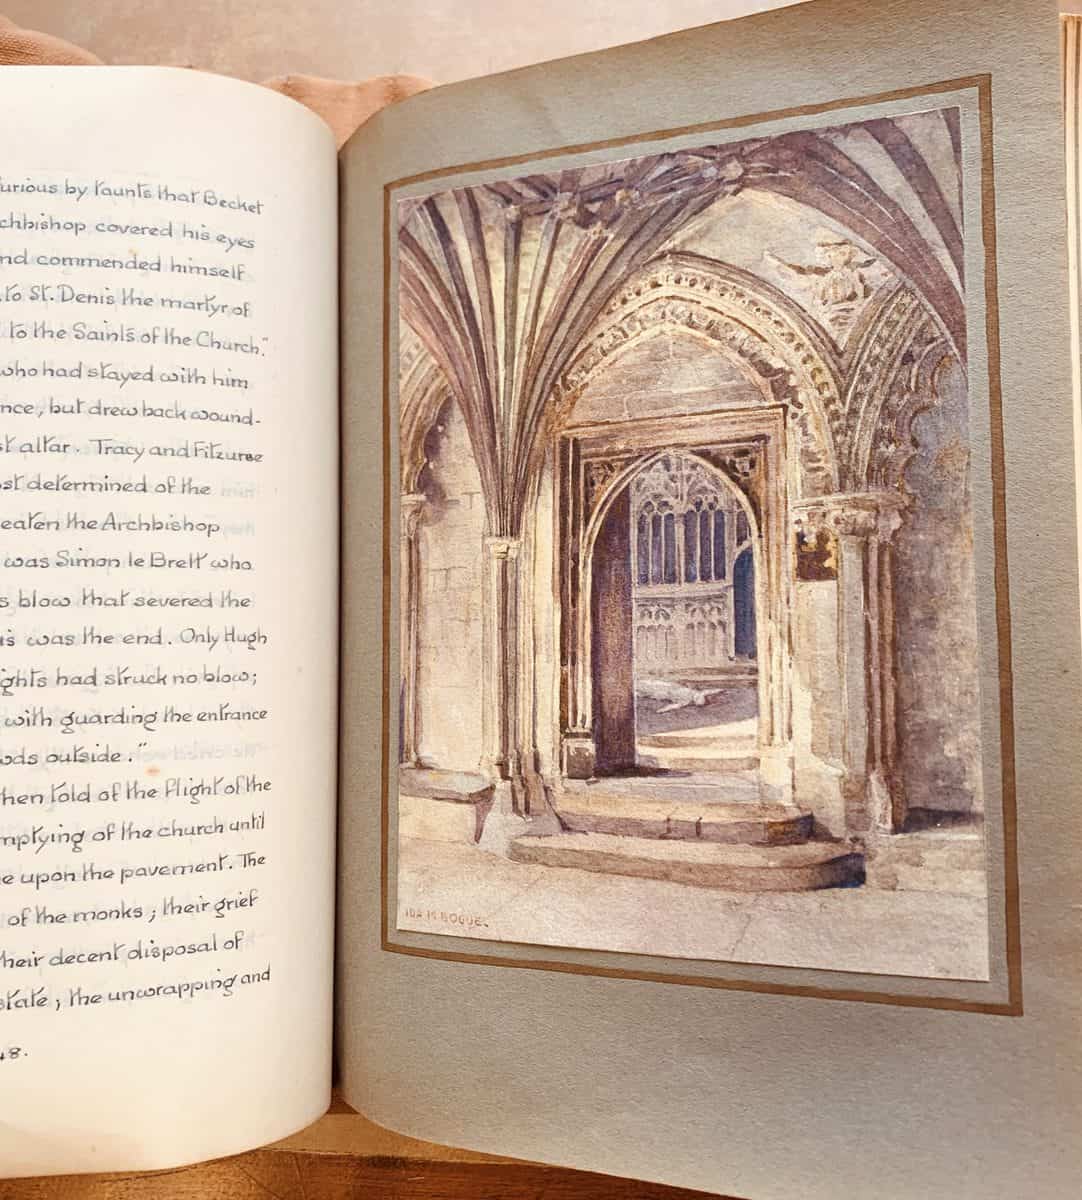 urious by taunts that Becket
chbishop covered his eyes
nd commended himself
to St. Denis the martyr of
to the Saints of the Church."
who had stayed with him
nce, but drew back wound-
st altar. Tracy and Fitzurse
st determined of the
eaten the Archbishop
was Simon le Brett who
s blow that severed the
is was the end. Only Hugh
ghts had struck no blow;
with guarding the entrance
ods outside."
hen told of the flight of the
mptying of the church until
e upon the pavement. The
of the monks; their grief
heir decent disposal of
state; the unwrapping and
48.
IDA M BOGUE